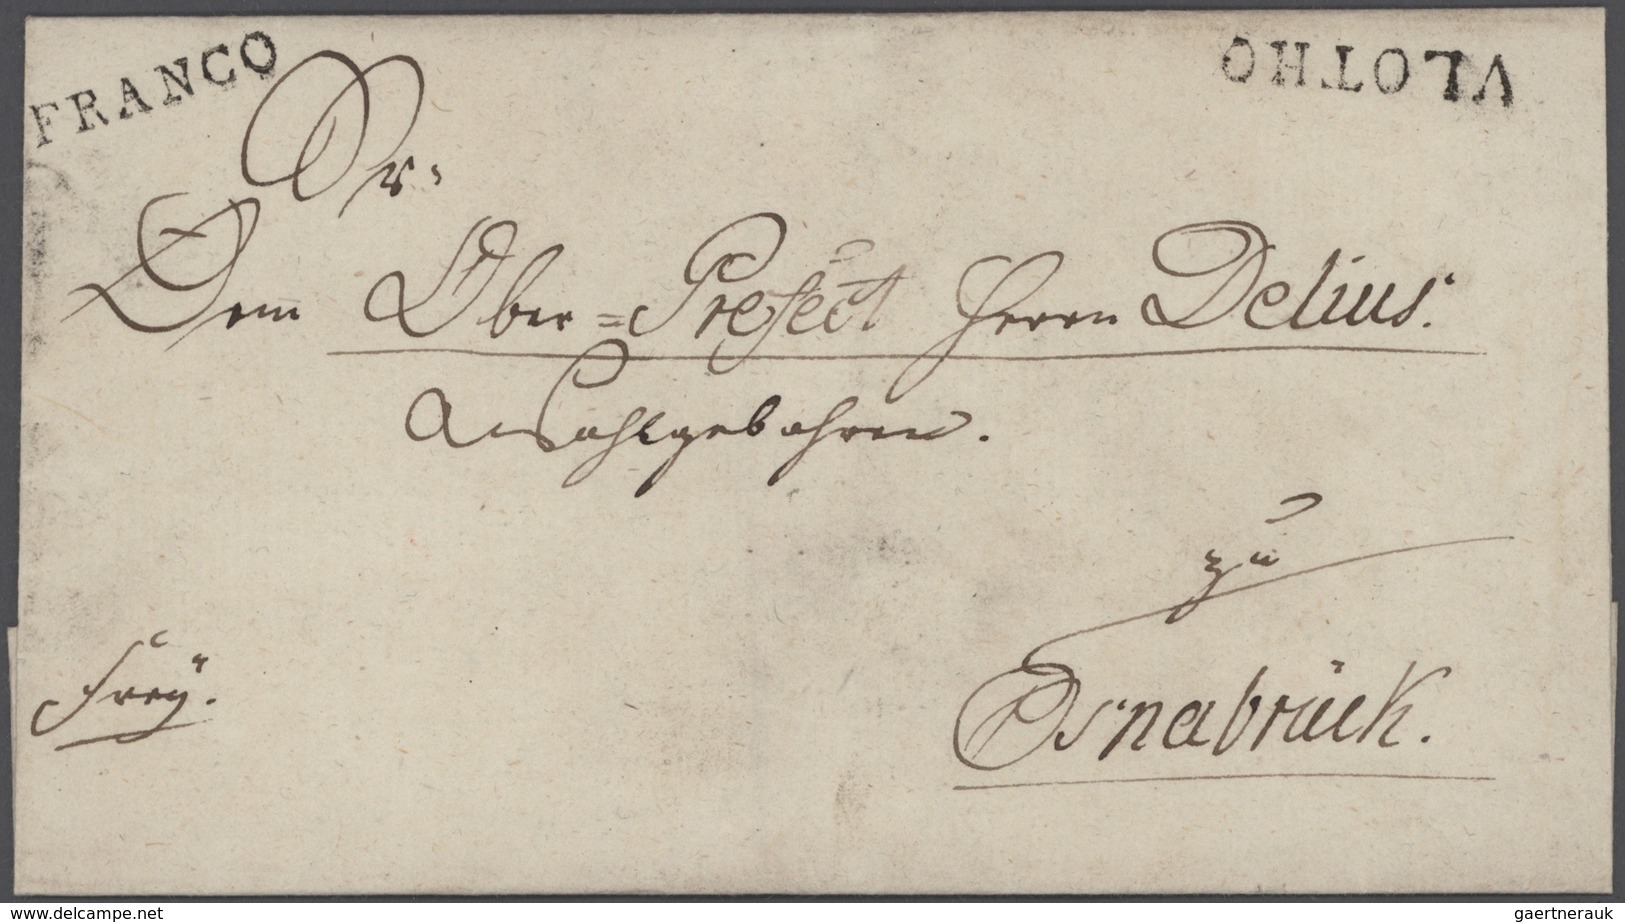 FRANCO
VLOTHO
Dem Ober=Prefect Herrn Delius.
Wohlgebohren.
zu
Osnabrück.
Frey.
www.delcampe.net
gaertnerauk